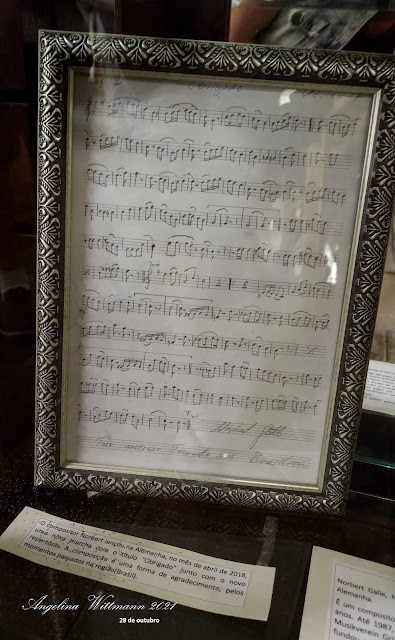 Obrigado
Trio
Trio
O compositor Norbert lançou na Alemanha, no mês de abril de 2018,
uma nova marcha com o título "Obrigado" junto com o novo
repertório. A composição é uma forma de agradecimento, pelos
momentos passados na região(Brasil).
Norbert Galle,
Alemanha.
É um composito
anos. Até 1987
Musikverein Gr
fundou
Angelina Wittmann 2021
28 de outubro